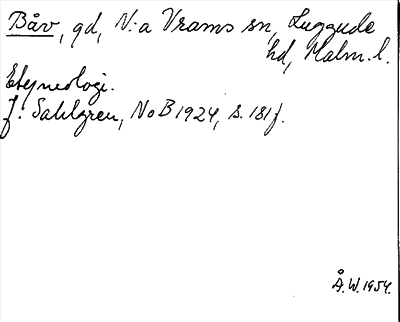 Båv, gd, N:a Vrams sn, Luggude
hd, Malm. l.
Etymologi.
J. Sahlgren, NoB 1924, s. 181 f.
Å.W. 1954.